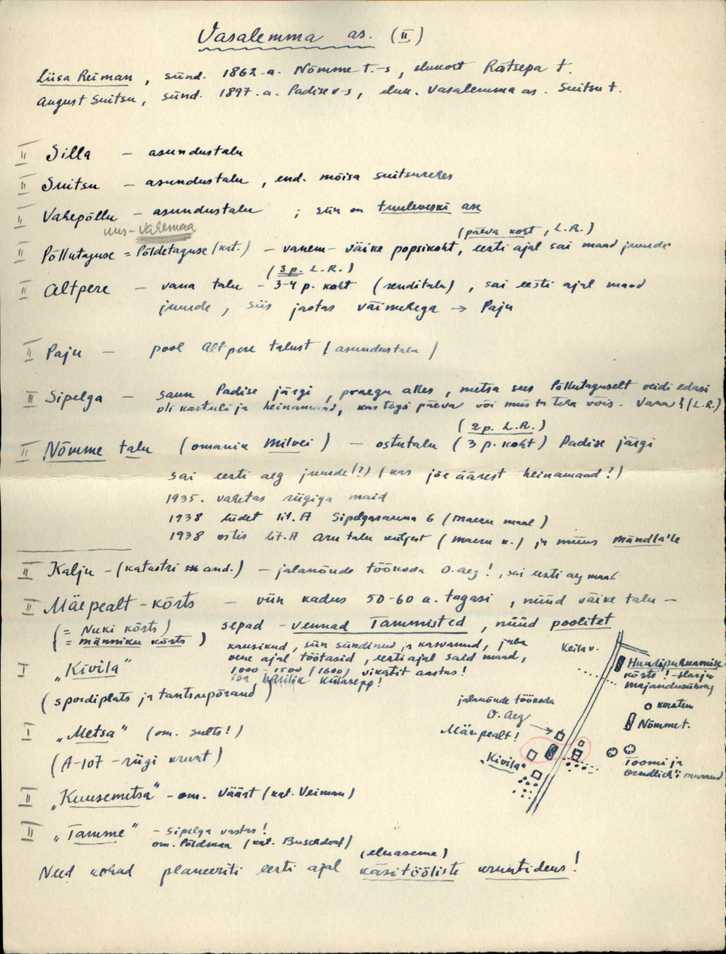 Vasalemma as. (II)
Liisa Reiman, sünd. 1862.a. Nõmme t.-s, elukoht Rätsepa t.
August Suitsu, sünd. 1897.a. Padise v-s, eluk. Vasalemma as. Suitsu t.
II Silla – asundustalu
II Suitsu – asundustalu, end. mõisa suitsurehes
II Vahepõllu – asundustalu ; siin on tuuleveski ase
uus-Vahemaa
(päeva koht, L.R.)
II Põllutaguse = Põldetaguse (kat.) – vanem – väike popsikoht, eesti ajal sai maad juurde
(3 p. L.R.)
II Altpere – vana talu – 3-4 p. koht (renditalu), sai eesti ajal maad
juurde, siis jaotas väimehega → Paju
II Paju – pool Altpere talust (asundustalu)
II Sipelga – saun Padise järgi, praegu alles, metsa sees Põllutaguselt veidi edasi
oli karjuli ja heinamaad, kas tegi päeva või mis ta teha võis. Vana! (L.R.)
(2 p. L.R.)
II Nõmme talu (omanik Milvei) – ostutalu (3 p. koht) Padise järgi
sai eesti aeg juurde (?) (kas jõe äärest heinamaad!)
1935. vahetas riigiga maid
1938 liidet lit. A Sipelgasauna 6 (maeru maal)
1938 ostis lit. A Aru talu küljest (maeru k.) ja müüs Mändla'le
II Kalju – (katastri and.) – jalanõude töökoda O. aeg!, sai eesti aeg maad
II Mäepealt-kõrts – viin kadus 50-60 a. tagasi, nüüd väike talu –
(= Nuki kõrts) sepad – vennad Tammisted, nüüd poolitet
(= männiku kõrts) kausikud, siin sündinud ja kasvanud, juba
vene ajal töötasid, eesti ajal said maad,
1000-1500 (1600) vikatit aastas!
külasepp!
I "Kivila"
(spordiplats ja tantsupõrand)
I "Metsa" (om. Sults!)
(A-107 – riigi kruut)
II "Kuusemetsa" – om. Väärt (kat. Veiman)
II "Tamme" – Sipelga vastas!
om. Põldman (kat. Buschdorf)
(eluaseme)
Need kohad planeeriti eesti ajal käsitööliste kruntideks!
Keila v.
kõrts!
majandushoov
korsten
Nõmme t.
Toomi ja
jalanõude töökoda
O. aeg
Mäepealt!
"Kivila"